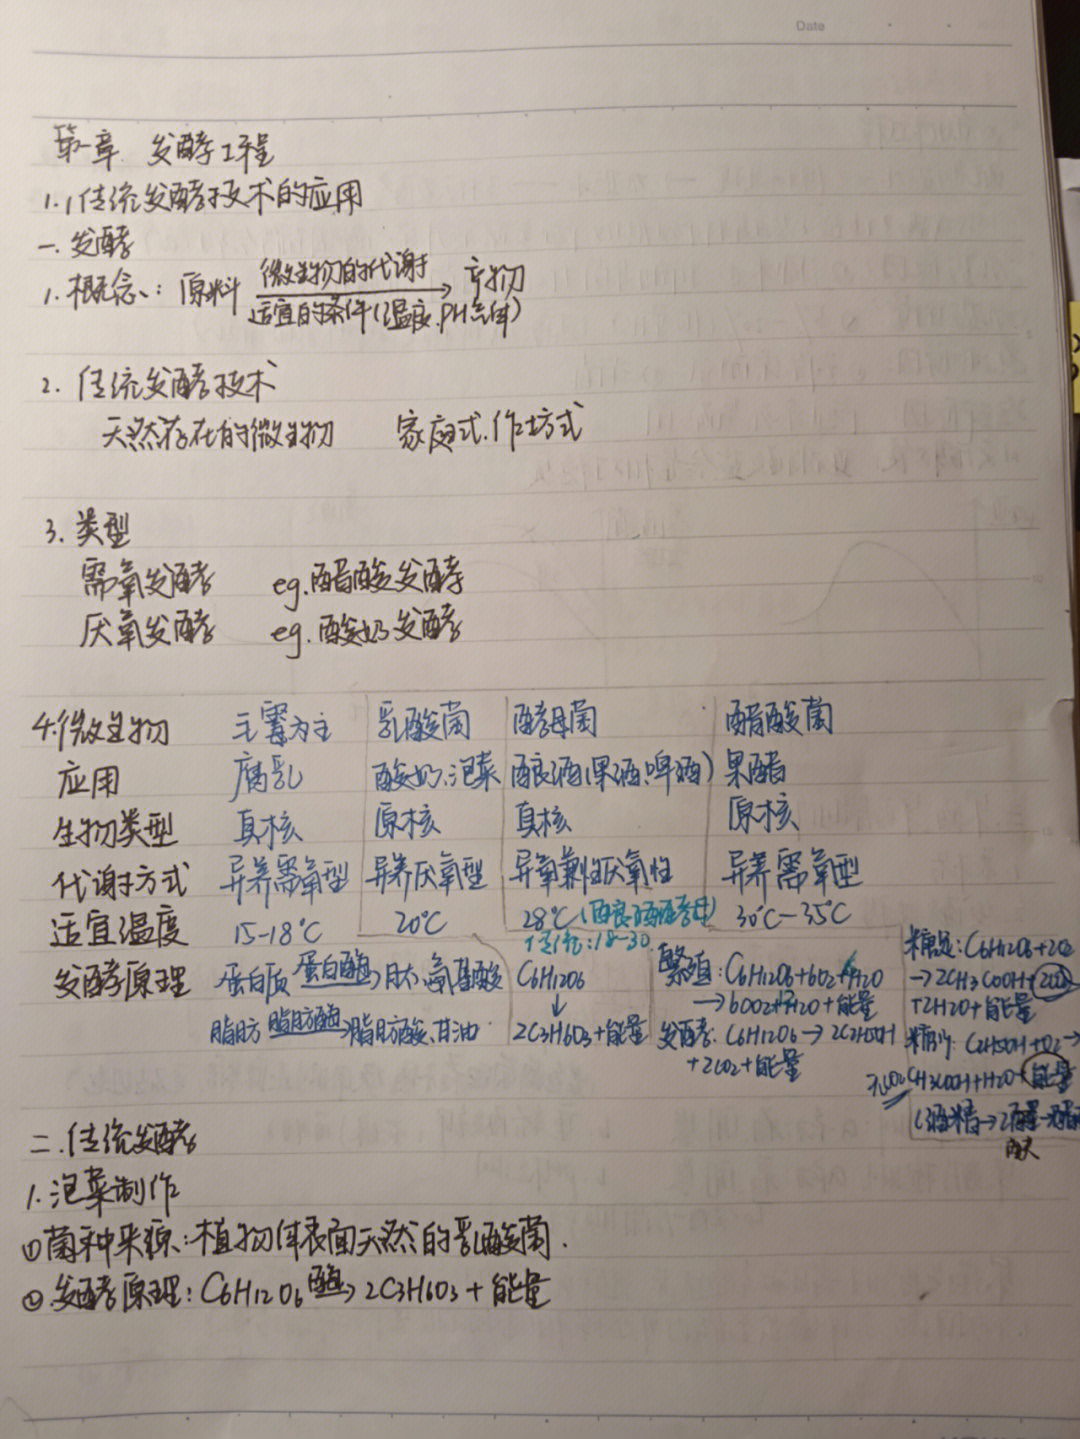 Date
第一章 发酵工程
1.1 传统发酵技术的应用
一. 发酵
1. 概念: 原料 微生物的代谢 产物
适宜的条件(温度、PH等)
2. 传统发酵技术
天然存在的微生物 家庭式.作坊式
3. 类型
需氧发酵 eg.醋酸发酵
厌氧发酵 eg.酸奶发酵
4.微生物 毛霉为主 乳酸菌 酵母菌 醋酸菌
应用 腐乳 酸奶、泡菜 酿酒(果酒、啤酒) 果醋
生物类型 真核 原核 真核 原核
代谢方式 异养需氧型 异养厌氧型 异氧兼性厌氧性 异养需氧型
适宜温度 15-18℃ 20℃ 28℃ 30℃-35℃
18-30
发酵原理 蛋白质 蛋白酶→肽、氨基酸 C6H12O6 繁殖: C6H12O6+6O2+H2O 糖足: C6H12O6+2O2
↓ →6CO2+H2O+能量 →2CH3COOH+2CO2
脂肪 脂肪酶→脂肪酸、甘油 2C3H6O3+能量 发酵: C6H12O6→2C2H5OH +2H2O+能量
+2CO2+能量 糖少: C2H5OH+O2→
CH3COOH+H2O+能量
二.传统发酵
1.泡菜制作
①菌种来源:植物体表面天然的乳酸菌.
②发酵原理: C6H12O6 酶→ 2C3H6O3+能量